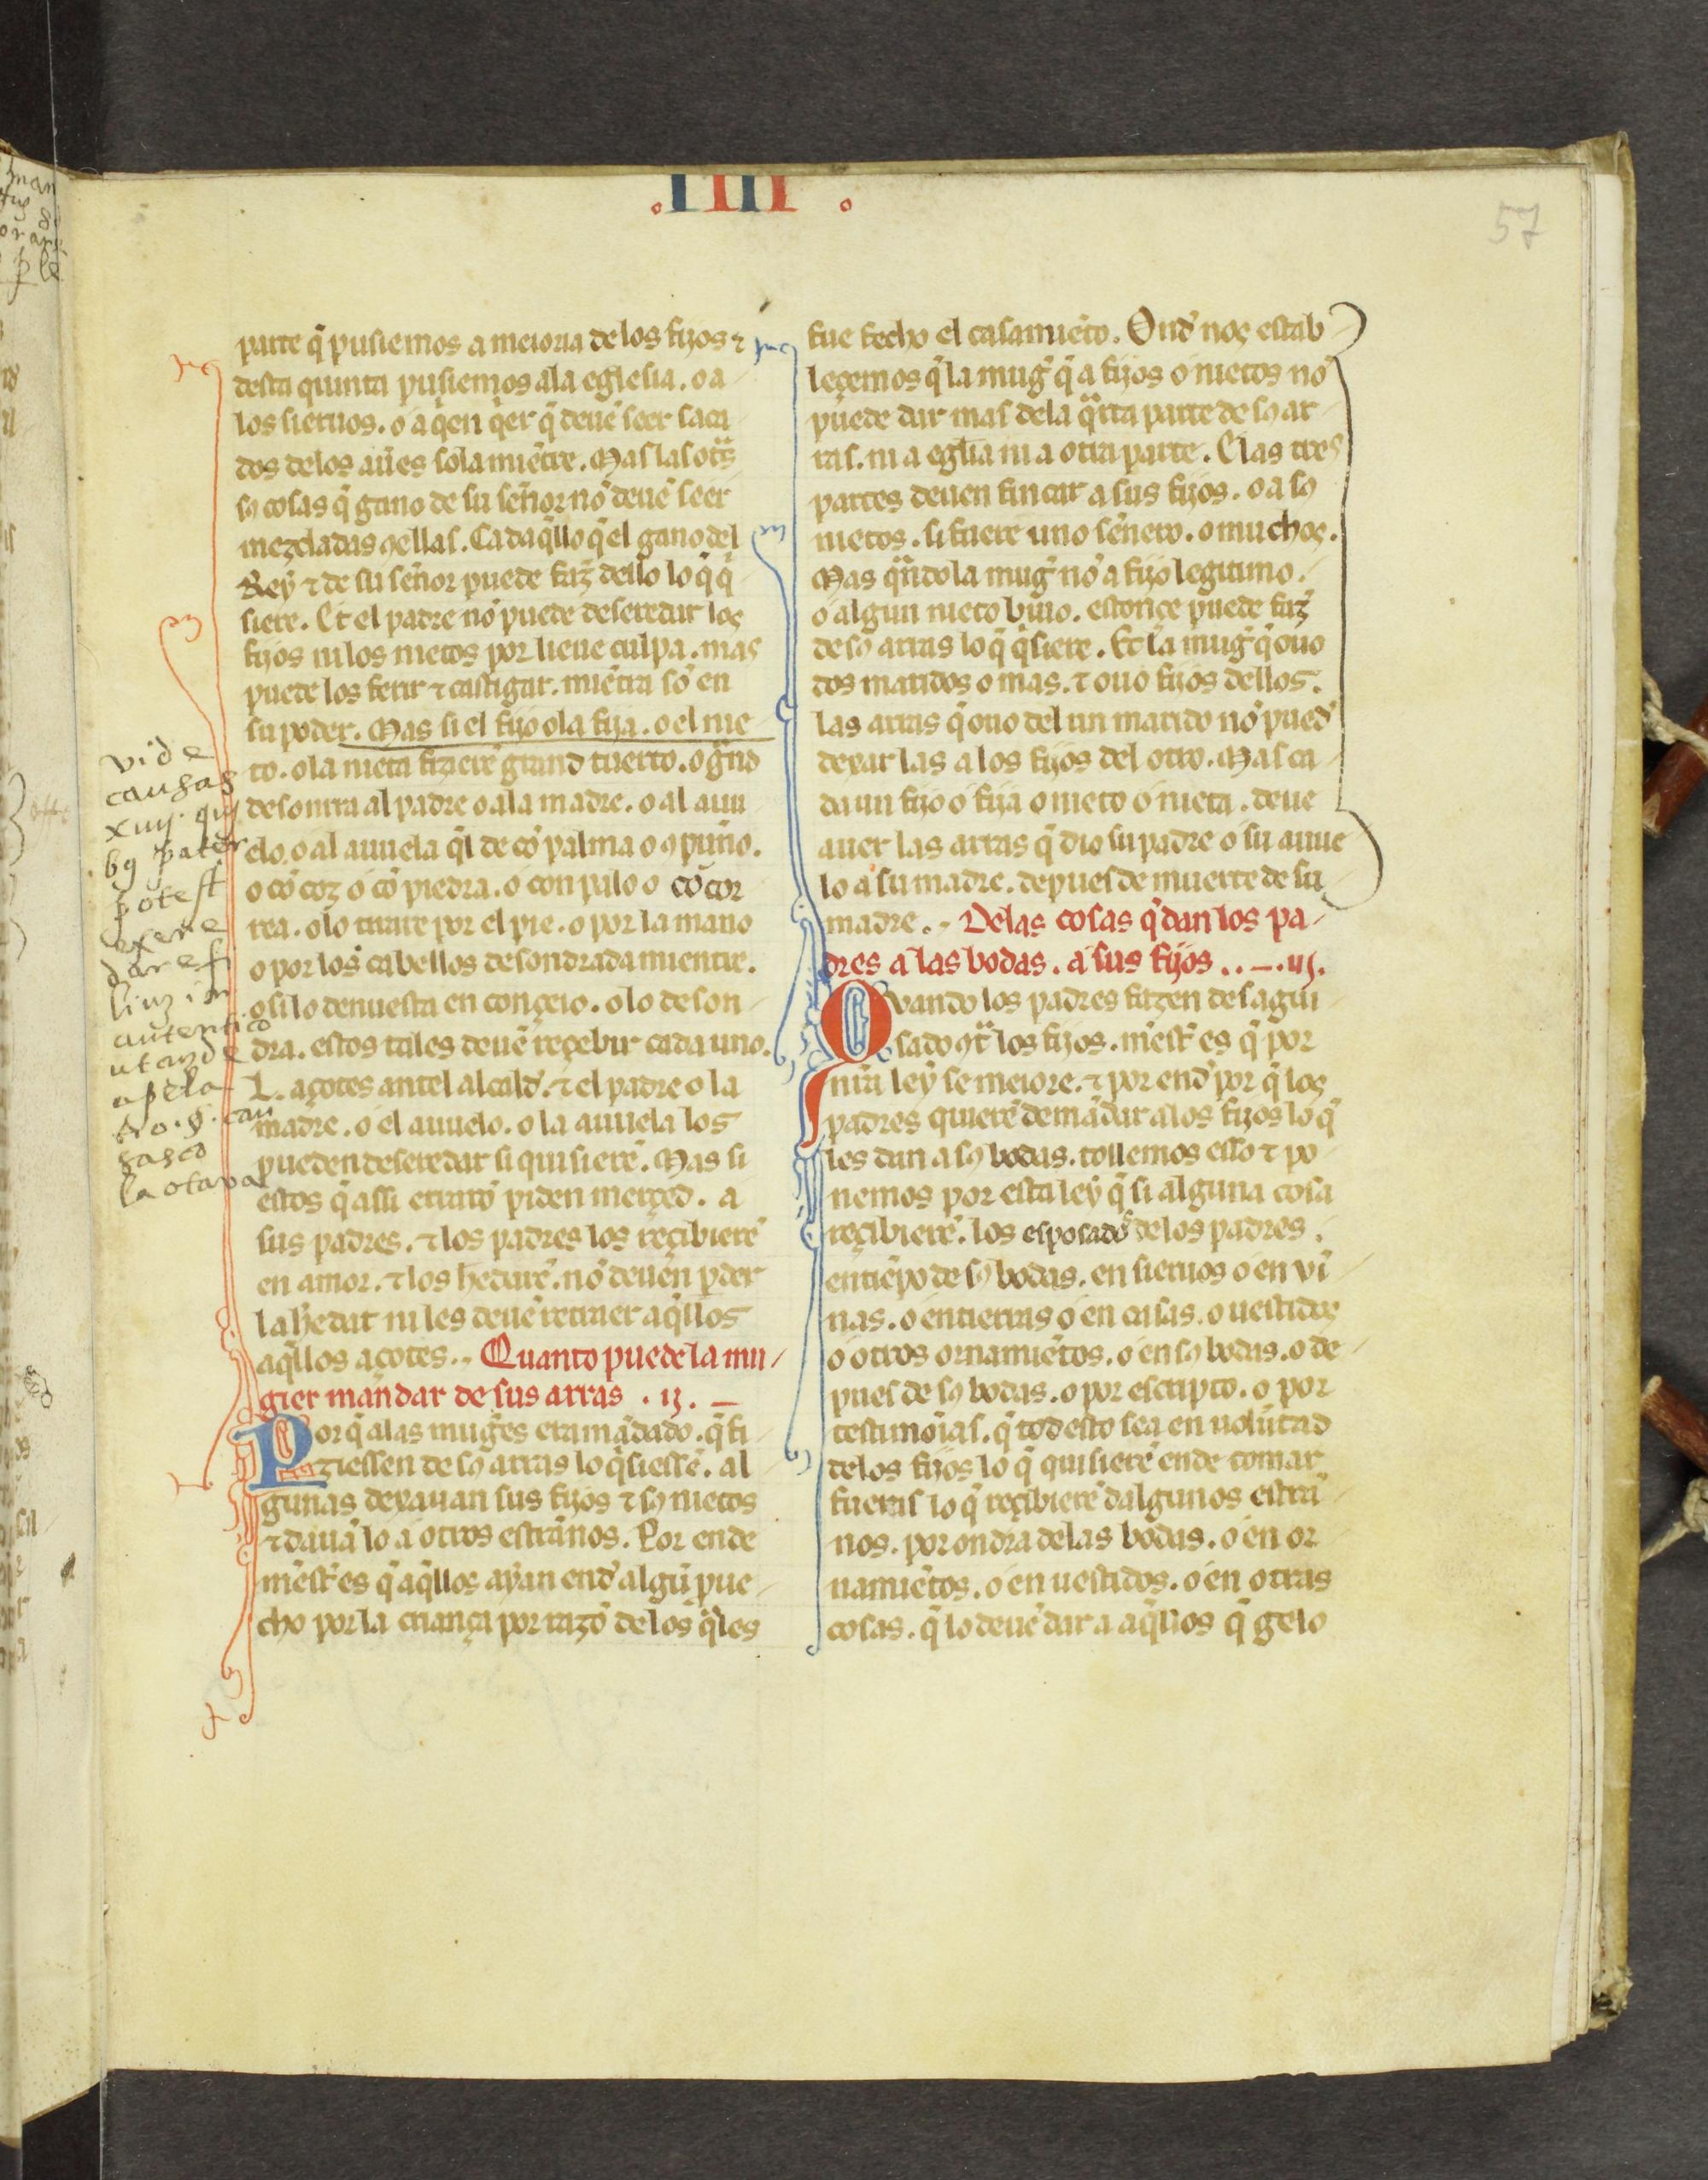 IIII
57
parte q̃ pusiemos a meioria de los fijos ⁊
desta quinta pusiemos ala eglesia. o a
los sieruos. o a q̃en q̃er q̃ deuẽ seer saca
dos delos auẽs sola miẽtre. Mas las otͣs
sꝯ cosas q̃ gano de su señor nõ deuẽ seer
mezcladas ꝯellas. Ca daq̃llo q̃ el gano del
Rey ⁊ de su señor puede faz̃ dello lo q̃ q̃
siere. Et el padre nõ puede deseredar los
fijos ni los nietos por lieue culpa. mas
puede los ferir ⁊ castigar. miẽtra sõ en
su poder. Mas si el fijo o la fija. o el nie
to. o la nieta fizierẽ grand tuerto. o gͣnd
desonrra al padre o ala madre. o al auu
elo. o al auuela q̃l de cõ palma o ꝯ puño.
o cõ coz o cõ piedra. o con palo o cõ cor
rea. o lo tirare por el pie. o por la mano
o por los cabellos desondrada mientre.
o si lo denuesta en conçeio. o lo deson
dra. estos tales deuẽ reçebir cada uno.
L. açotes antel alcald̃. ⁊ el padre o la
madre. o el auuelo. o la auuela los
pueden deseredar si quisierẽ. Mas si
estos q̃ assi errarõ piden merçed. a
sus padres. ⁊ los padres los reçibierẽ
en amor. ⁊ los hedarẽ. nõ deuen ꝑder
la hedat ni les deuẽ retraer aq̃llos
aq̃llos açotes. Quanto puede la mu
gier mandar de sus arras . ij.
Por q̃ alas mug̃es era mãdado. q̃ fi
ziessen de sꝯ arras lo q̃siessẽ. al
gunas dexauan sus fijos ⁊ sꝯ nietos
⁊ dauã lo a otros estraños. Por ende
mest̃ es q̃ aq̃llos ayan end̃ algũ pue
cho por la criança por razõ de los q̃les
fue fecho el casamiẽto. Ond̃ nos estab
leçemos q̃ la mug̃ q̃ a fijos o nietos nõ
puede dar mas dela q̃rta parte de sꝯ ar
ras. ni a eglia ni a otra parte. C las tres
partes deuen fincar a sus fijos. o a sꝯ
nietos. si fuere uno sẽnero. o muchos.
Mas q̃ndo la mug̃ nõ a fijo legitimo.
o algun nieto biuo. estonçe puede faz̃
de sꝯ arras lo q̃ q̃siere. Et la mug̃ q̃ ouo
dos maridos o mas. ⁊ ouo fijos dellos.
las arras q̃ ouo del un marido nõ pued̃
dexar las a los fijos del otro. Mas ca
da un fijo o fija o nieto o nieta. deue
auer las arras q̃ dio su padre o su auue
lo a su madre. depues de muerte de su
madre. Delas cosas q̃ dan los pa
dres a las bodas. a sus fijos . . iij.
Quando los padres fazen desagui
sado ꝯtͣ los fijos. mest̃ es q̃ por
nrã ley se meiore. ⁊ por end̃ por q̃ los
padres quierẽ demãdar alos fijos lo q̃
les dan a sꝯ bodas. tollemos esto ⁊ po
nemos por esta ley q̃ si alguna cosa
reçibierẽ. los esposados delos padres.
entiẽpo de sꝯ bodas. en sieruos o en vĩ
nas. o en tierras o en casas. o uestidos
o otros ornamiẽtos. o en sꝯ bodas. o de
pues de sꝯ bodas. o por escripto. o por
testimoĩas. q̃ tod esto sea en uolũtad
delos fijos lo q̃ quisierẽ ende tomar
fueras lo q̃ reçibierẽ dalgunos estra
nos. por ondra delas bodas. o en or
namiẽtos. o en uestidos. o en otras
cosas. q̃ lo deuẽ dar a aq̃llos q̃ gelo
vide
causas
xiiij. qui
bꝯ pater
potest
exere
dare fi
lium in
autentico
ut cum de
apela
la otava